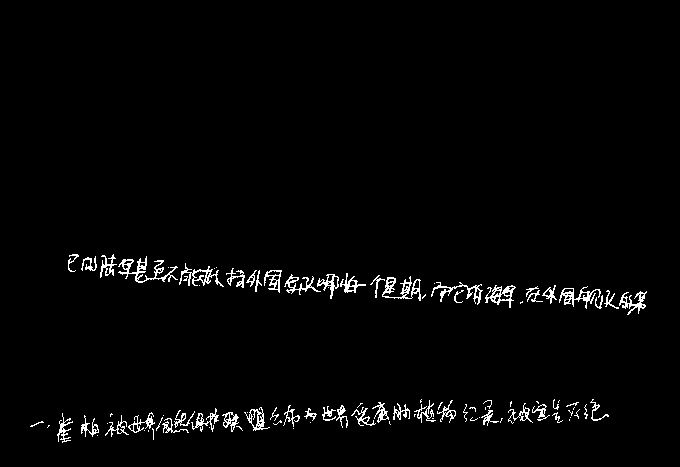 它的陆军甚至不能抵挡外国军队哪怕一个星期,而它的海军,在外国舰队的第
一,崖柏被世界自然保护联盟公布为世界受威胁植物红录,被宣告灭绝。